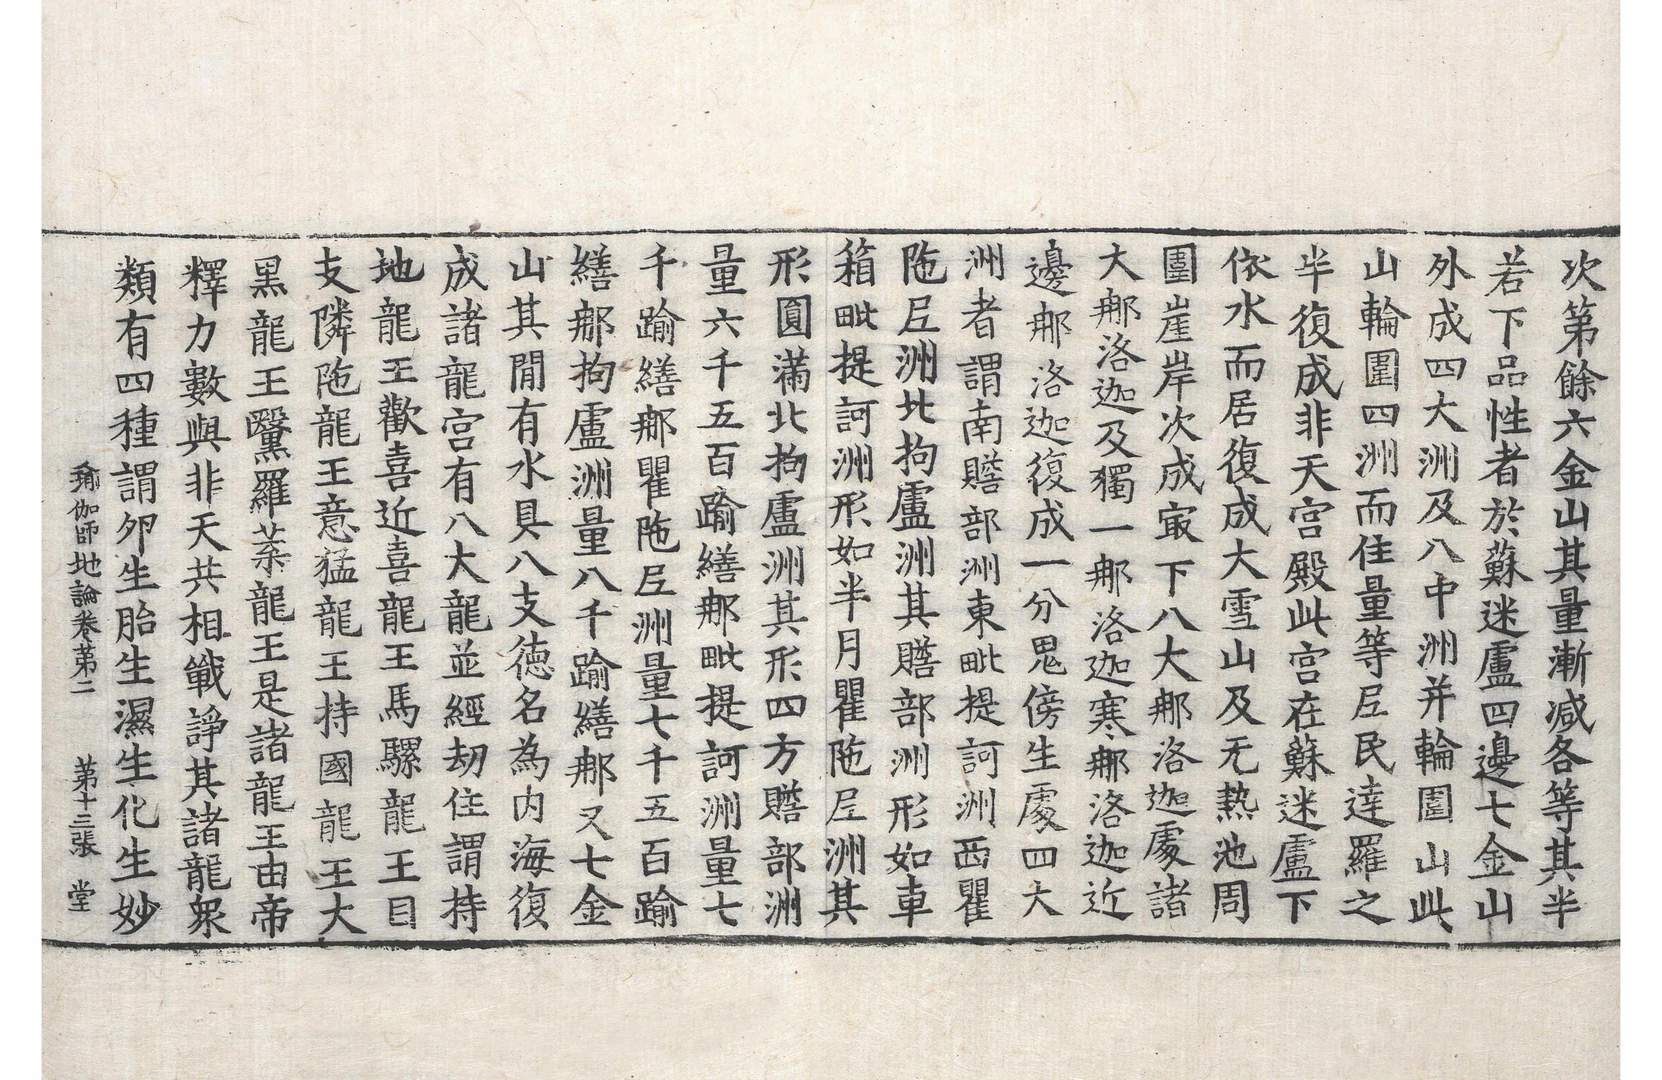 次第餘六金山其量漸減各等其半
若下品性者於蘇迷盧四邊七金山
外成四大洲及八中洲并輪圍山此
山輪圍四洲而住量等尼民達羅之
半復成非天宮殿此宮在蘇迷盧下
依水而居復成大雪山及无熱池周
圍崖岸次成㝡下八大那洛迦處諸
大那洛迦及獨一那洛迦寒那洛迦近
邊那洛迦復成一分鬼傍生處四大
洲者謂南贍部洲東毗提訶洲西瞿
陁尼洲北拘盧洲其贍部洲形如車
箱毗提訶洲形如半月瞿陁尼洲其
形圓滿北拘盧洲其形四方贍部洲
量六千五百踰繕那毗提訶洲量七
千踰繕那瞿陁尼洲量七千五百踰
繕那拘盧洲量八千踰繕那又七金
山其閒有水具八支德名為內海復
成諸龍宮有八大龍並經劫住謂持
地龍王歡喜近喜龍王馬騾龍王目
支隣陁龍王意猛龍王持國龍王大
黑龍王黳羅葉龍王是諸龍王由帝
釋力數與非天共相戰諍其諸龍衆
類有四種謂卵生胎生濕生化生妙
瑜伽師地論卷第二 第十三張 堂